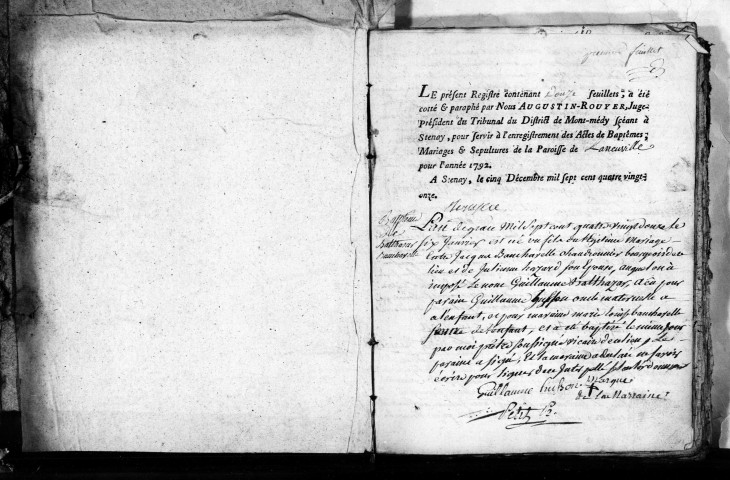 premier feuillet
LE présent Registre contenant douze feuillets, a été
cotté & paraphé par Nous AUGUSTIN-ROUYER, Juge-
président du Tribunal du District de Mont-médy séant à
Stenay, pour servir à l'enregistrement des Actes de Baptêmes;
Mariages & Sepultures de la Paroisse de Laneuville
pour l'année 1792.
A Stenay, le cinq Décembre mil sept cent quatre vingt-
onze.
Baptême
de
Balthazar
Bancharelle
L'an de grace Mil Sept cent quatre vingt douze le
six Janvier est né un fils du légitime Mariage
entre Jacque Bancharelle chaudronnier bourgeois de ce
lieu et de Julienne hazard son Epouse, auquel on a
imposé le nom Guillaume Balthazar, a eu pour
parain Guillaume husson oncle maternelle a
l'enfant, et pour maraine marie louise bancharelle
de l'enfant, et a été baptisé le même jour
par moi prêtre soussigné vicaire dudit lieu, Le
paraine a signé, Et la maraine a déclaré ne savoir
écrire pour signer
Guillaume husson Marque
de la Marraine
Petit P.